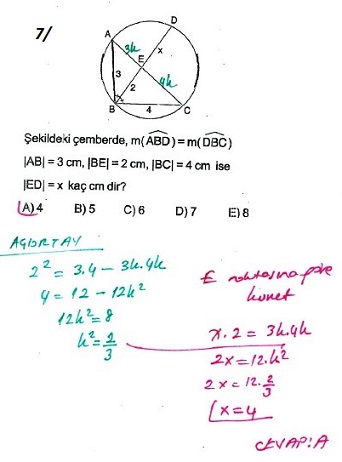 7/
A
D
3k
E
x
3
2
4k
B
4
C
Şekildeki çemberde, m(ABD) = m(DBC)
|AB| = 3 cm, |BE| = 2 cm, |BC| = 4 cm ise
|ED| = x kaç cm dir?
A) 4 B) 5 C) 6 D) 7 E) 8
AÇIORTAY
2² = 3.4 – 3k.4k
4 = 12 – 12k²
12k² = 8
k² = 2/3
E noktasına göre
kuvvet
x.2 = 3k.4k
2x = 12.k²
2x = 12.2/3
x = 4
CEVAP: A